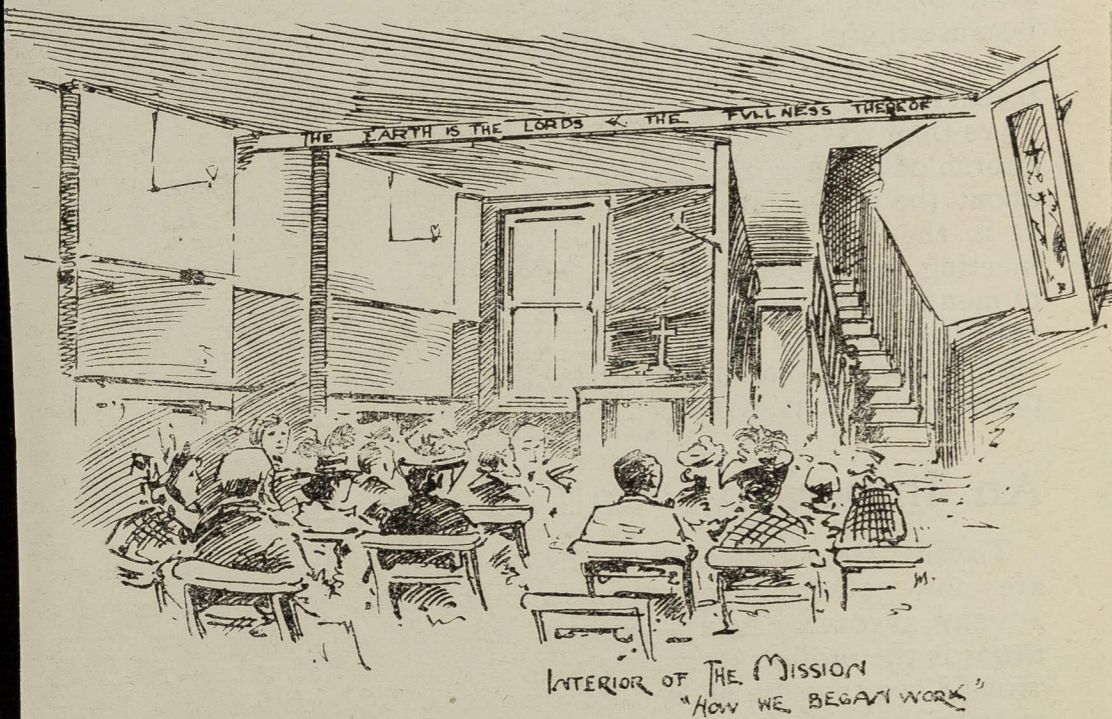 THE EARTH IS THE LORDS & THE FULLNESS THEREOF
M.
INTERIOR OF THE MISSION
"HOW WE BEGAN WORK"